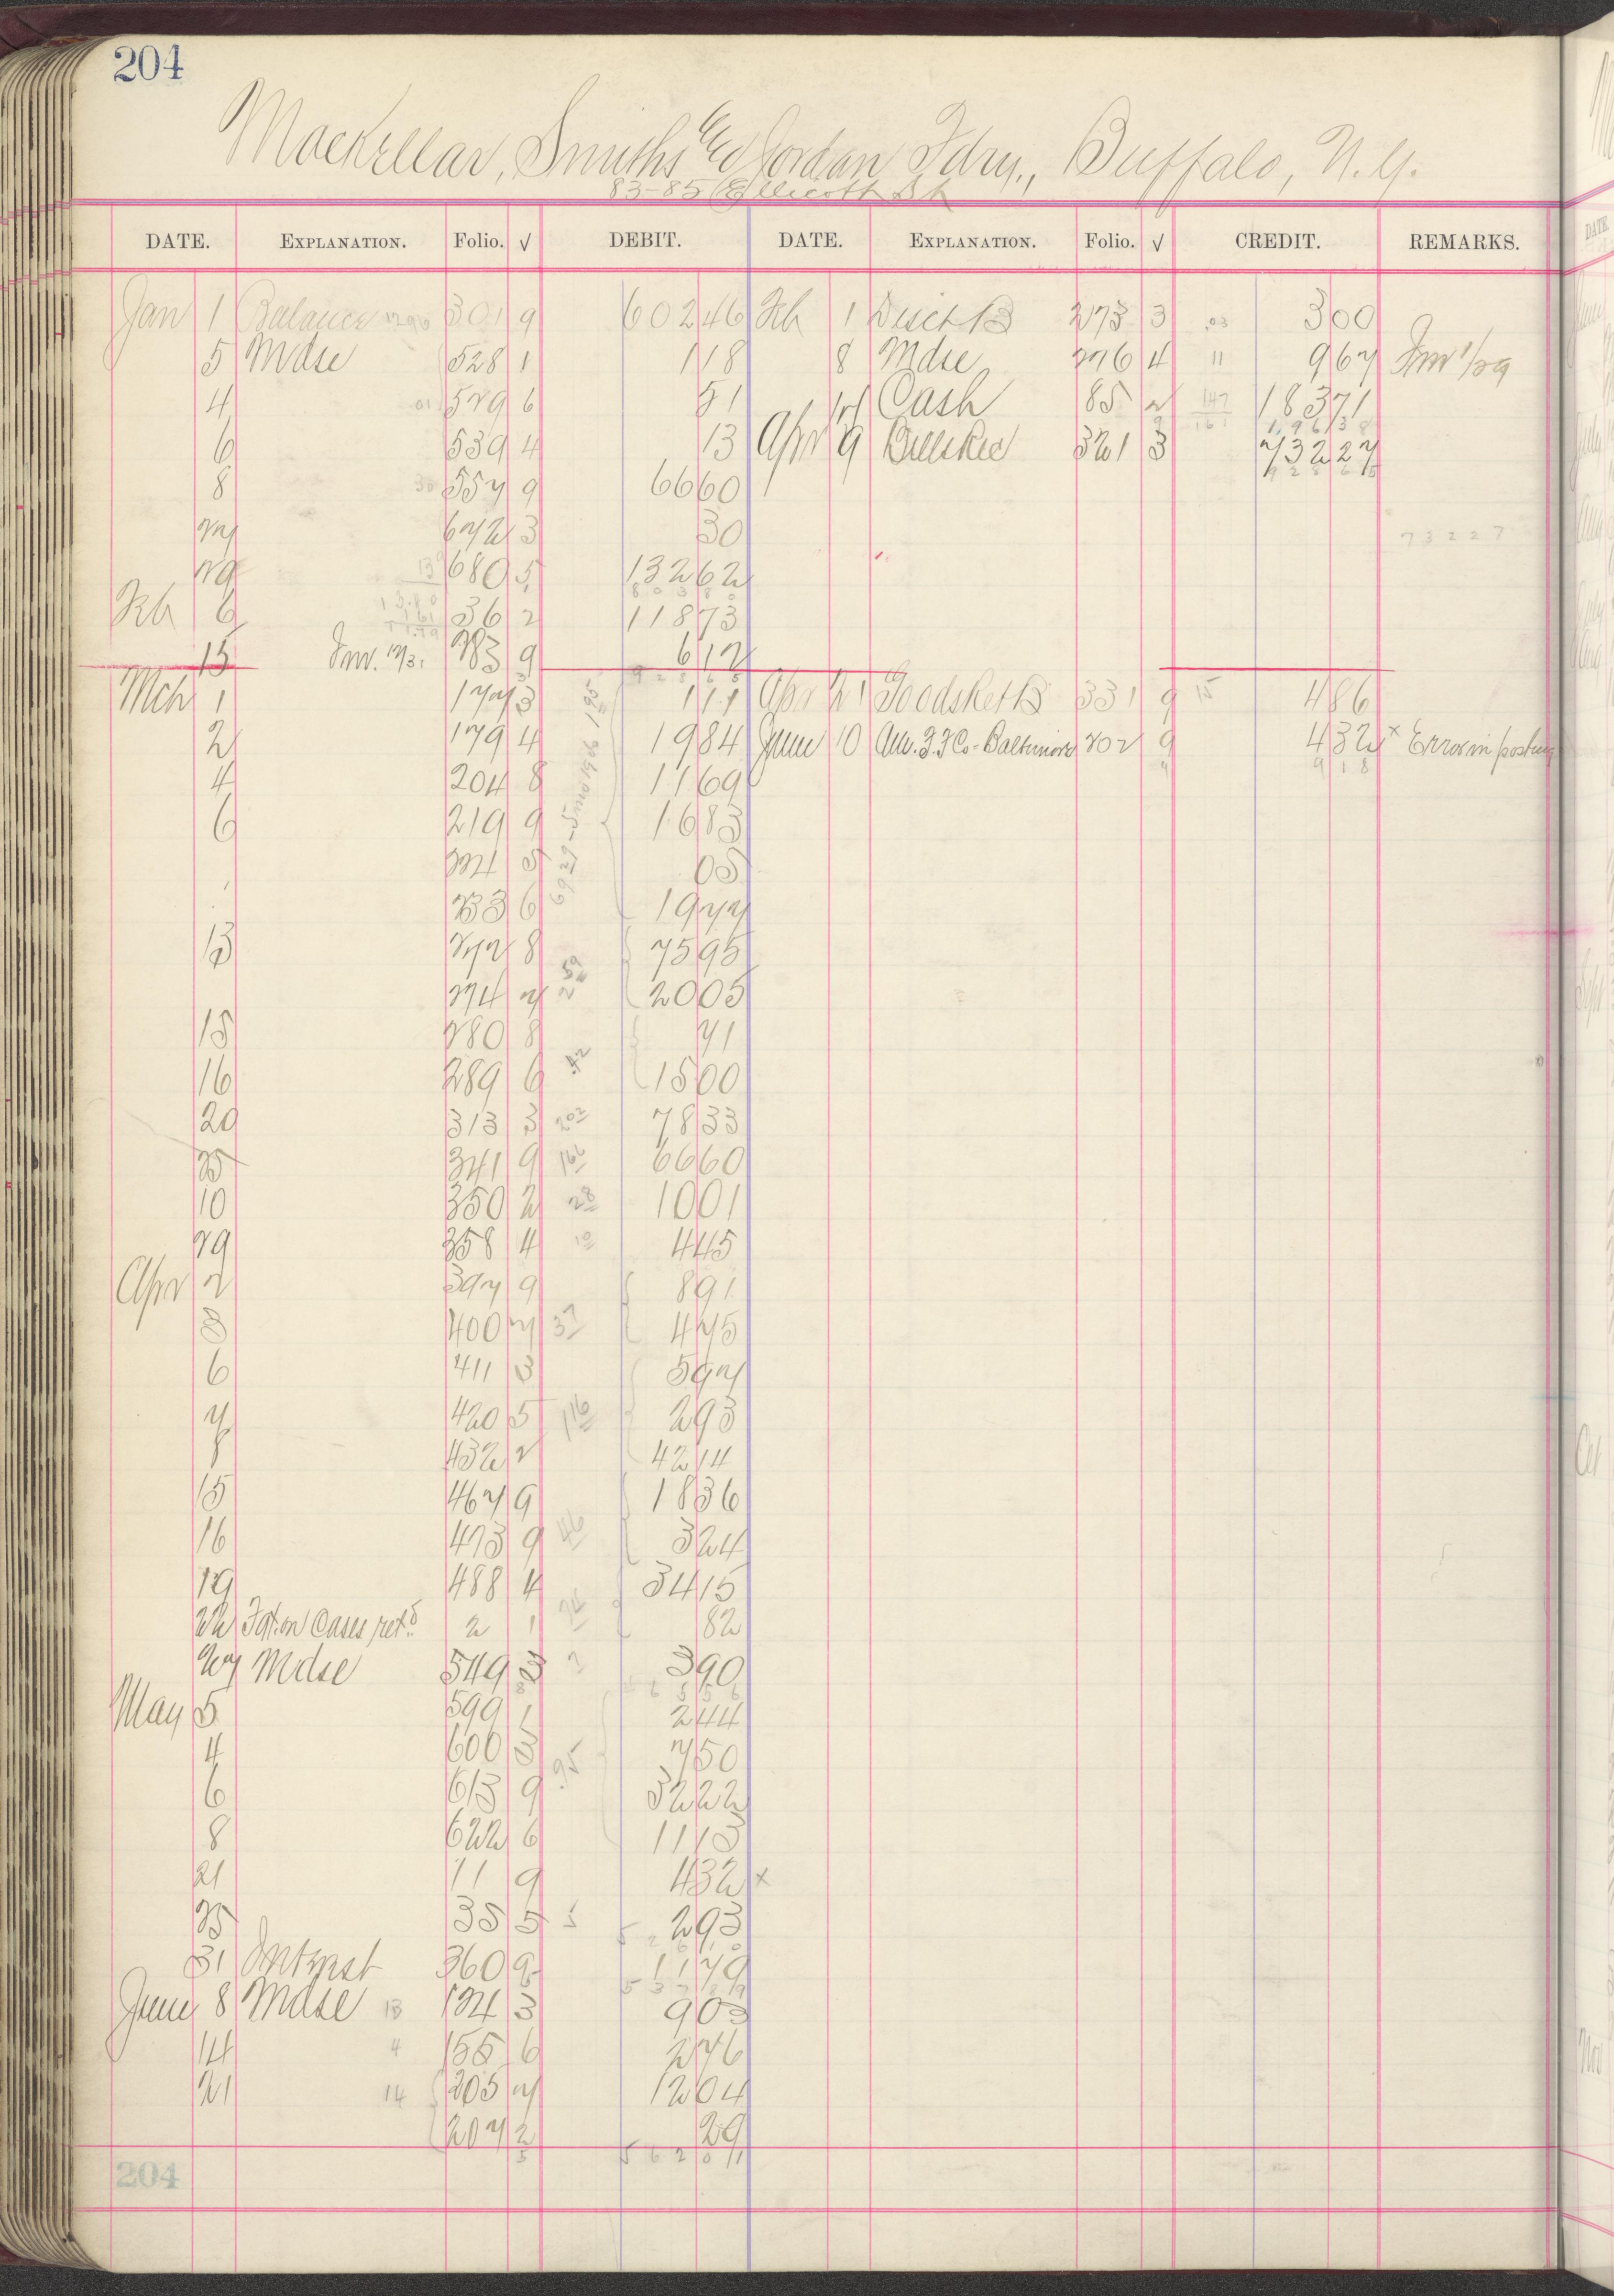 204
Mackellar, Smiths & Jordan Fdry., Buffalo, N.Y.
83-85 Ellicott St
DATE. EXPLANATION. Folio. √ DEBIT. DATE. EXPLANATION. Folio. √ CREDIT. REMARKS.
Jan 1 Balance 301 9 60246 Feb 1 273 3 .03 300
5 Mdse 528 1 118 8 Mdse 276 4 11 967 Inv 1/29
4 529 6 51 Cash 85 2 147 18371
6 539 4 13 Apr 9 Bills Rec 321 3 73227
8 557 9 6660
27 672 3 30 73227
29 680 5 13262
Feb 6 36 2 11873
15 Inv. 12/31 83 9 612
Mch 1 177 3 111 Apr 21 Goods Ret B 331 9 15 486
2 179 4 1984 June 10 Am. T. F Co - Baltimore 202 9 432 x Error in posting
4 204 8 1169
6 219 9 1683
224 5 05
233 6 1977
13 272 8 7595
274 7 2005
15 280 8 71
16 289 6 .42 1500
20 313 3 202 7833
25 341 9 166 6660
10 350 2 28 1001
29 358 4 10 445
Apr 2 397 9 891
3 400 7 37 475
6 411 3 597
7 420 5 116 293
8 432 2 4214
15 467 9 1836
16 473 9 46 324
19 488 4 3415
22 Fgt. on Cases retd 2 1 82
27 Mdse 549 3 390
May 5 599 1 244
4 600 3 750
6 613 9 .95 3222
8 622 6 1113
21 11 9 432 x
25 35 5 5 293
31 Interest 360 9 1179
June 8 Mdse 13 124 3 903
14 4 155 6 276
21 14 205 7 1204
207 2 29
56201
204